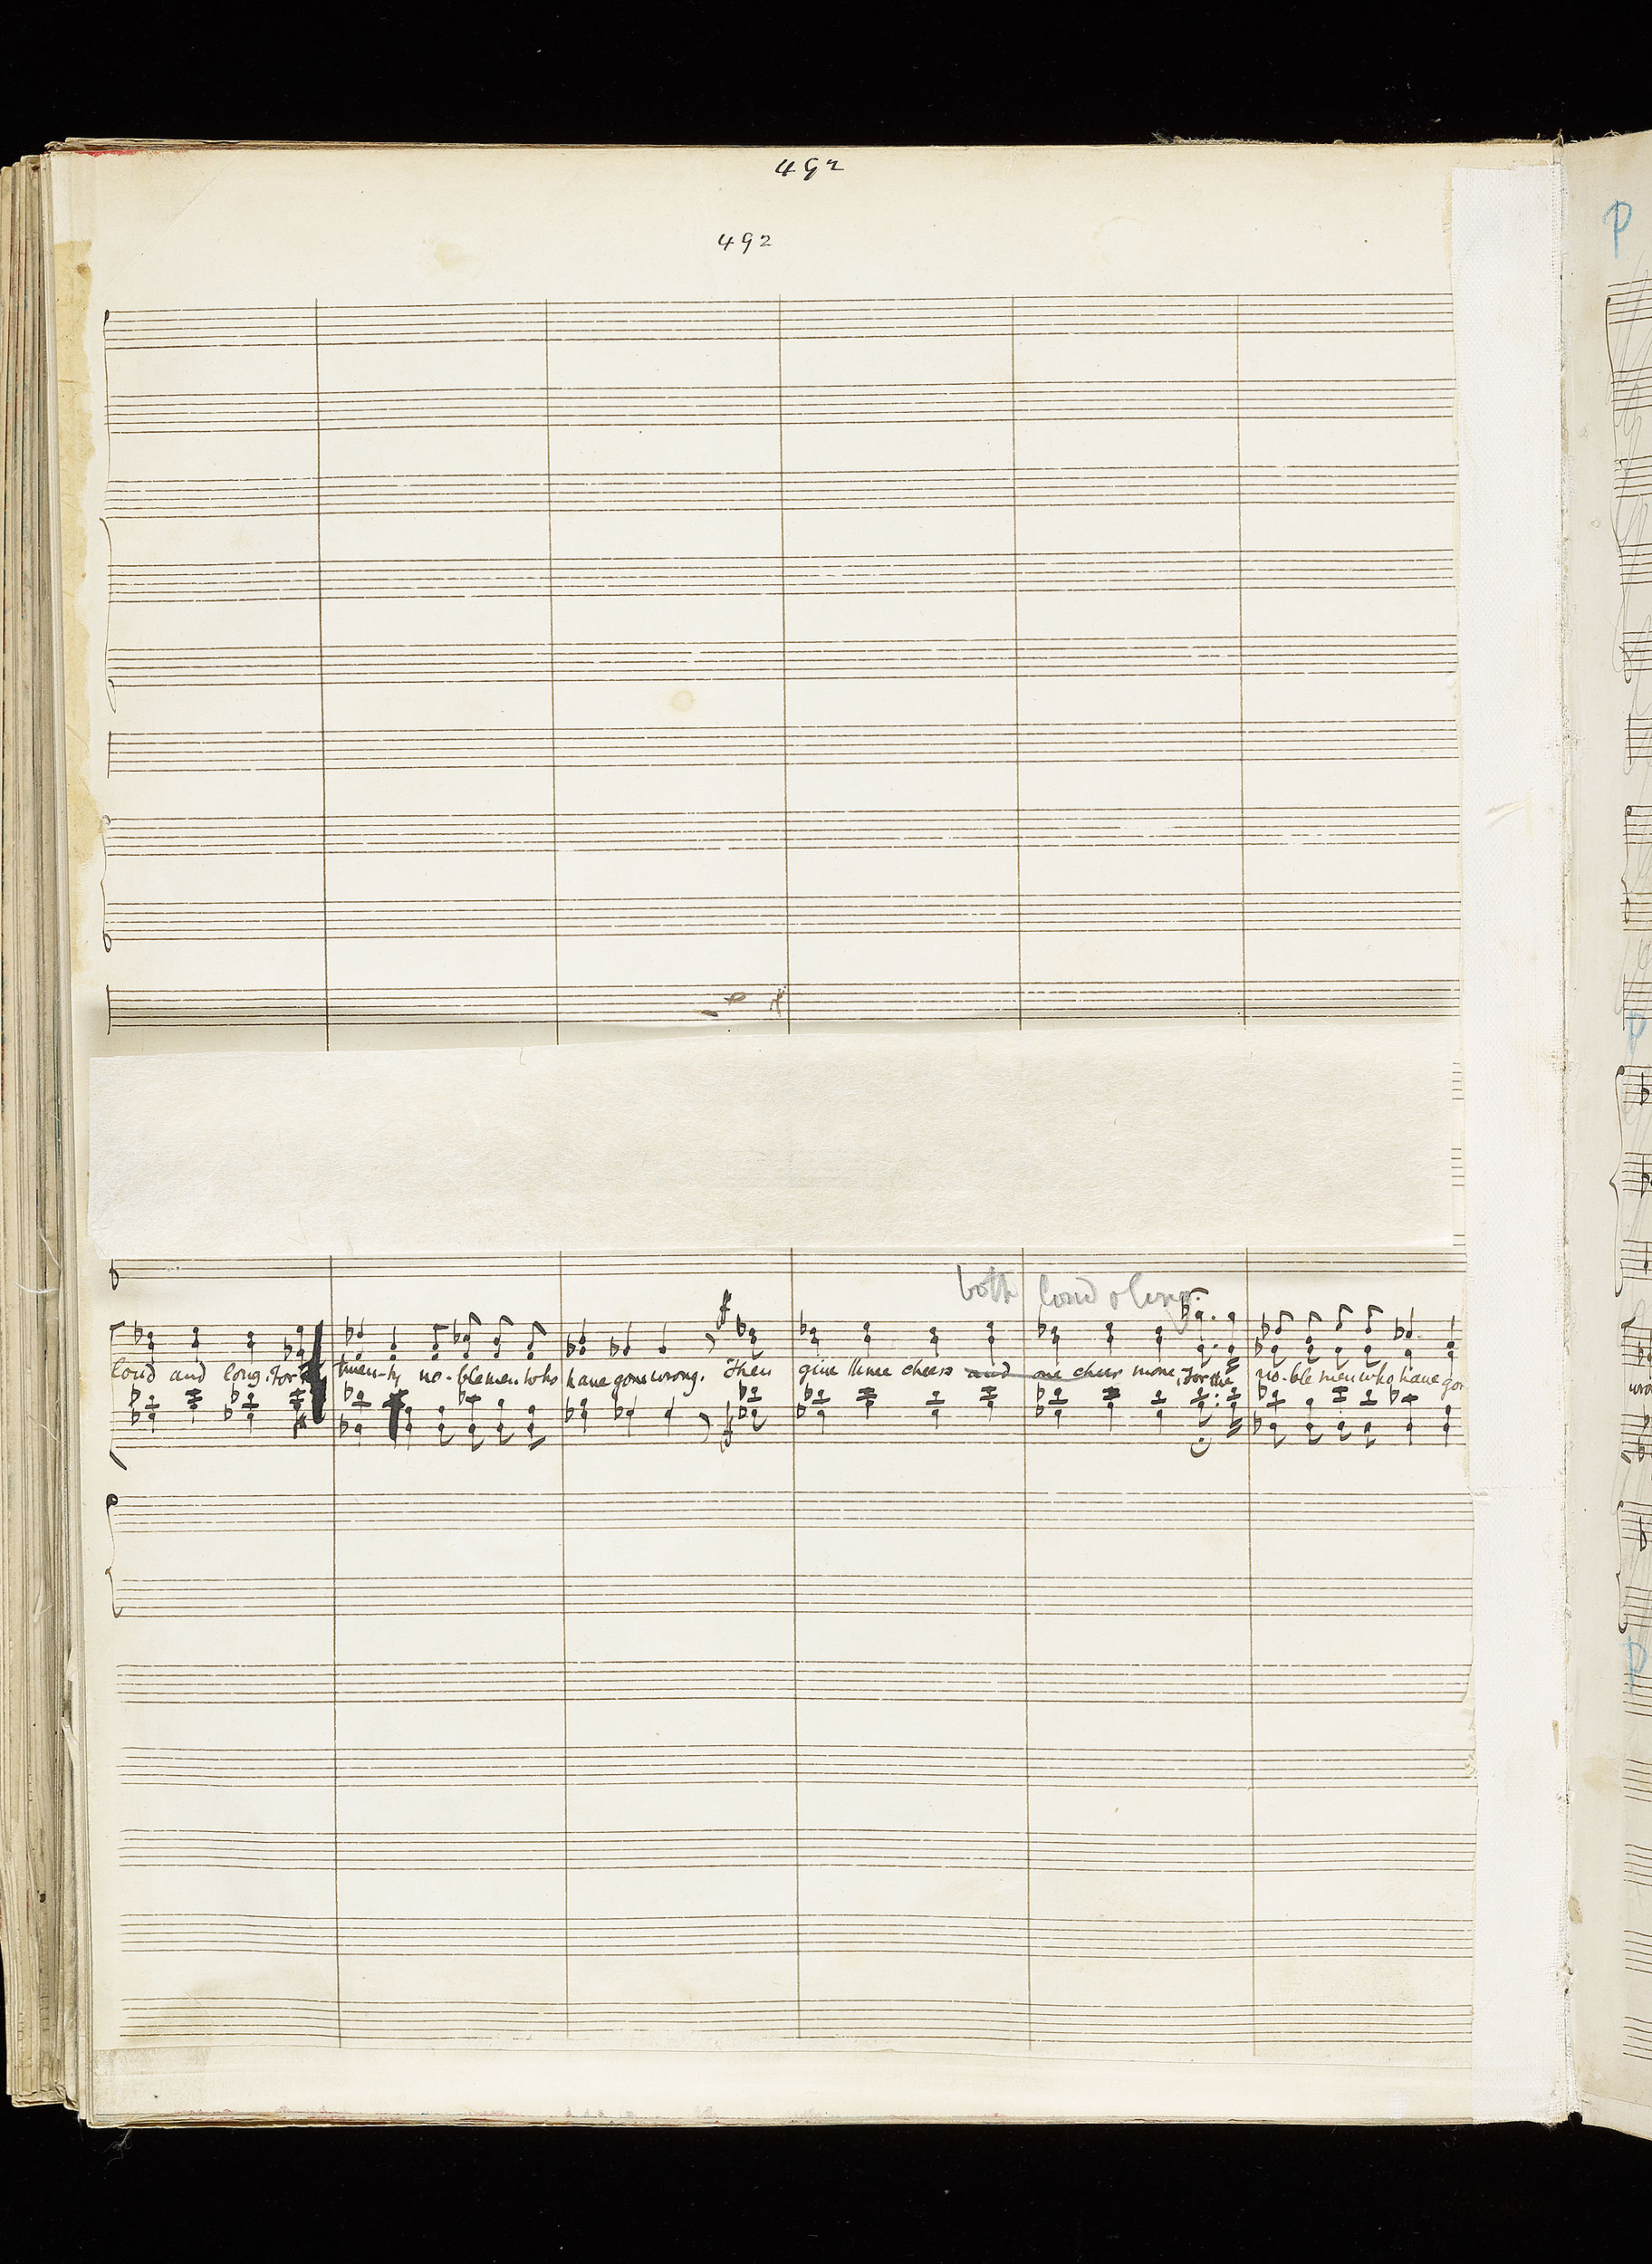 492
492
P
both loud & long.
f
loud and long. For twen-ty no-blemen who have gone wrong. Then give three cheers and one cheer more, For the no-ble men who have go
f
P
P